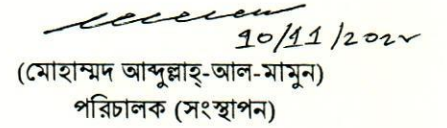 10/11/202৮
(মোহাম্মদ আব্দুল্লাহ্-আল-মামুন)
পরিচালক (সংস্থাপন)